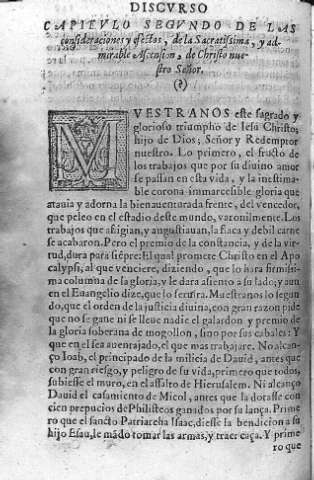 DISCVRSO
CAPITVLO SEGVNDO DE LAS
consideraciones y efectos, de la Sacratissima, y ad-
mirable Ascension, de Christo nue-
stro Señor.
MVESTRANOS este sagrado y
glorioso triumpho de Iesu Christo,
hijo de Dios, Señor y Redemptor
nuestro. Lo primero, el fructo de
los trabajos que por su diuino amor
se passan en esta vida, y la inestima-
ble corona immarcesible gloria que
atauia y adorna la bienauenturada frente, del vencedor,
que peleo en el estadio deste mundo, varonilmente. Los
trabajos que afligian, y angustiauan, la flaca y debil carne
se acabaron. Pero el premio de la constancia, y de la vir-
tud, dura para siẽpre: El qual promete Christo en el Apo
calypsi, al que venciere, diziendo, que lo hara firmissi-
ma columna de su gloria, y le dara asiento a su lado; y aun
en el Euangelio dize, que lo seruira. Muestranos lo segun
do, que el orden de la justicia diuina, con gran razon pide
que no se gane ni se lleue nadie el galardon y premio de
la gloria soberana de mogollon, sino por sus cabales: Y
que en el sea auentajado, el que mas trabajare. No alcan-
ço Ioab, el principado de la milicia de Dauid, antes que
con gran riesgo, y peligro de su vida, primero que todos,
subiesse el muro, en el assalto de Hierusalem. Ni alcanço
Dauid el casamiento de Micol, antes que la dotasse con
cien prepucios de Philisteos ganados por su lança. Prime
ro que el sancto Patriarcha Isaac, diesse la bendicion a su
hijo Esau, le mãdo tomar las armas, y traer caça. Y prime
ro que